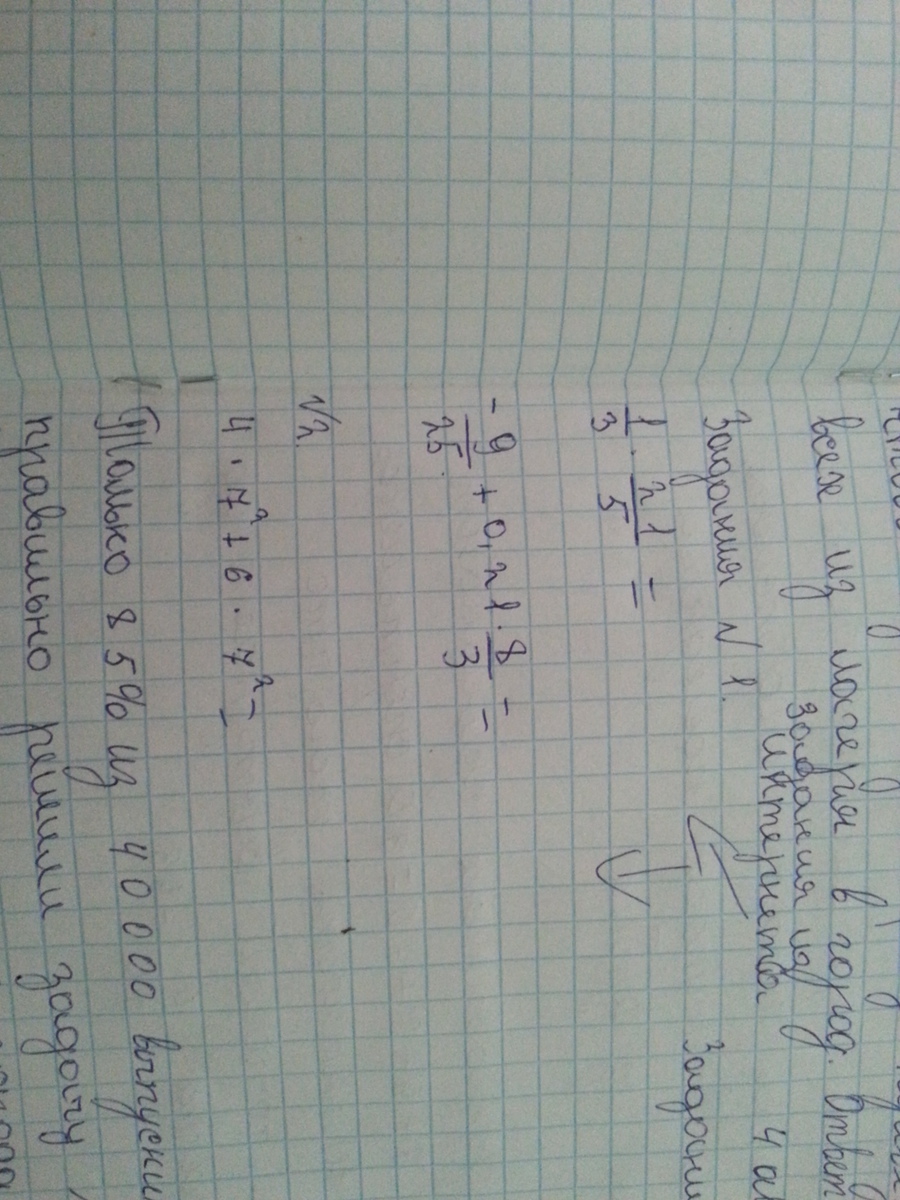 всех из лагеря в город. Ответ
Задания из
интернета
4
Задания √ 1.
1/3 · 21/5 =
- 9/25 + 0,21 · 8/3 =
√2.
4 · 7² + 6 · 7² =
Только 85% из 40000
правильно решили задачу